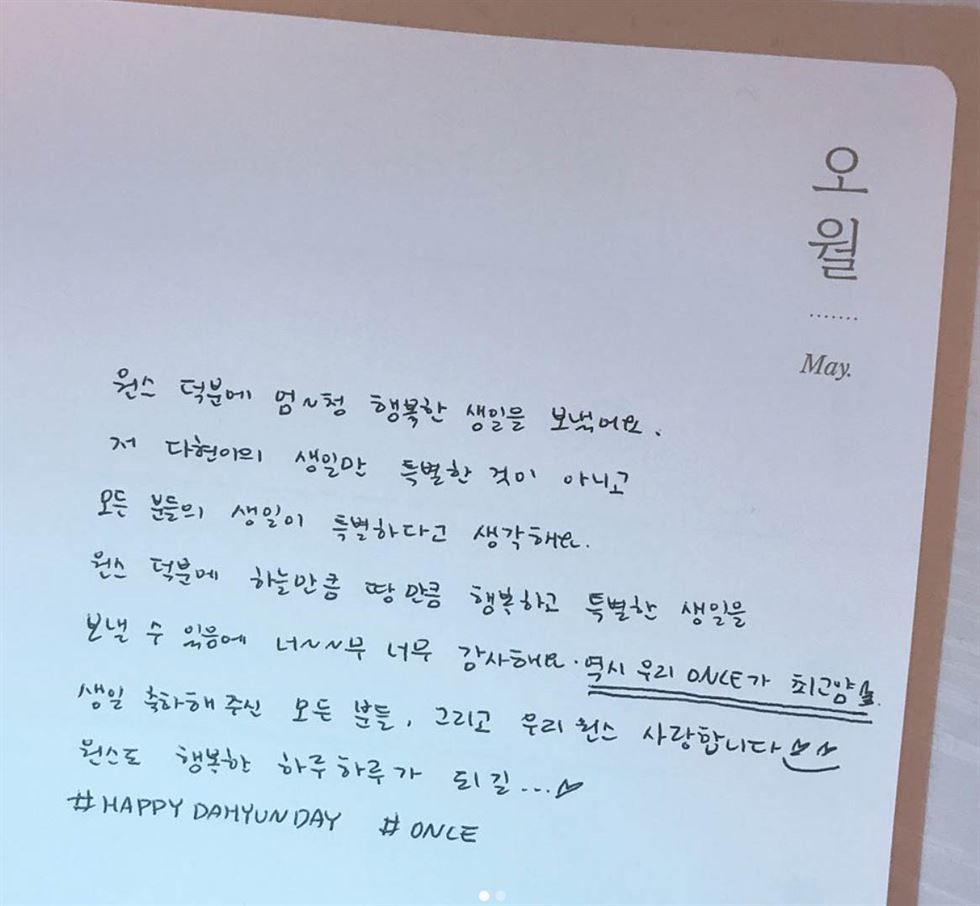 오월
May.
원스 덕분에 엄~청 행복한 생일을 보냈어요.
저 다현이의 생일만 특별한 것이 아니고
모든 분들의 생일이 특별하다고 생각해요.
원스 덕분에 하늘만큼 땅만큼 행복하고 특별한 생일을
보낼 수 있음에 너~~~무 너무 감사해요. 역시 우리 ONCE가 최고얌
생일 축하해주신 모든 분들, 그리고 우리 원스 사랑합니다
원스도 행복한 하루하루가 되길...♡
#HAPPY DAHYUN DAY #ONCE